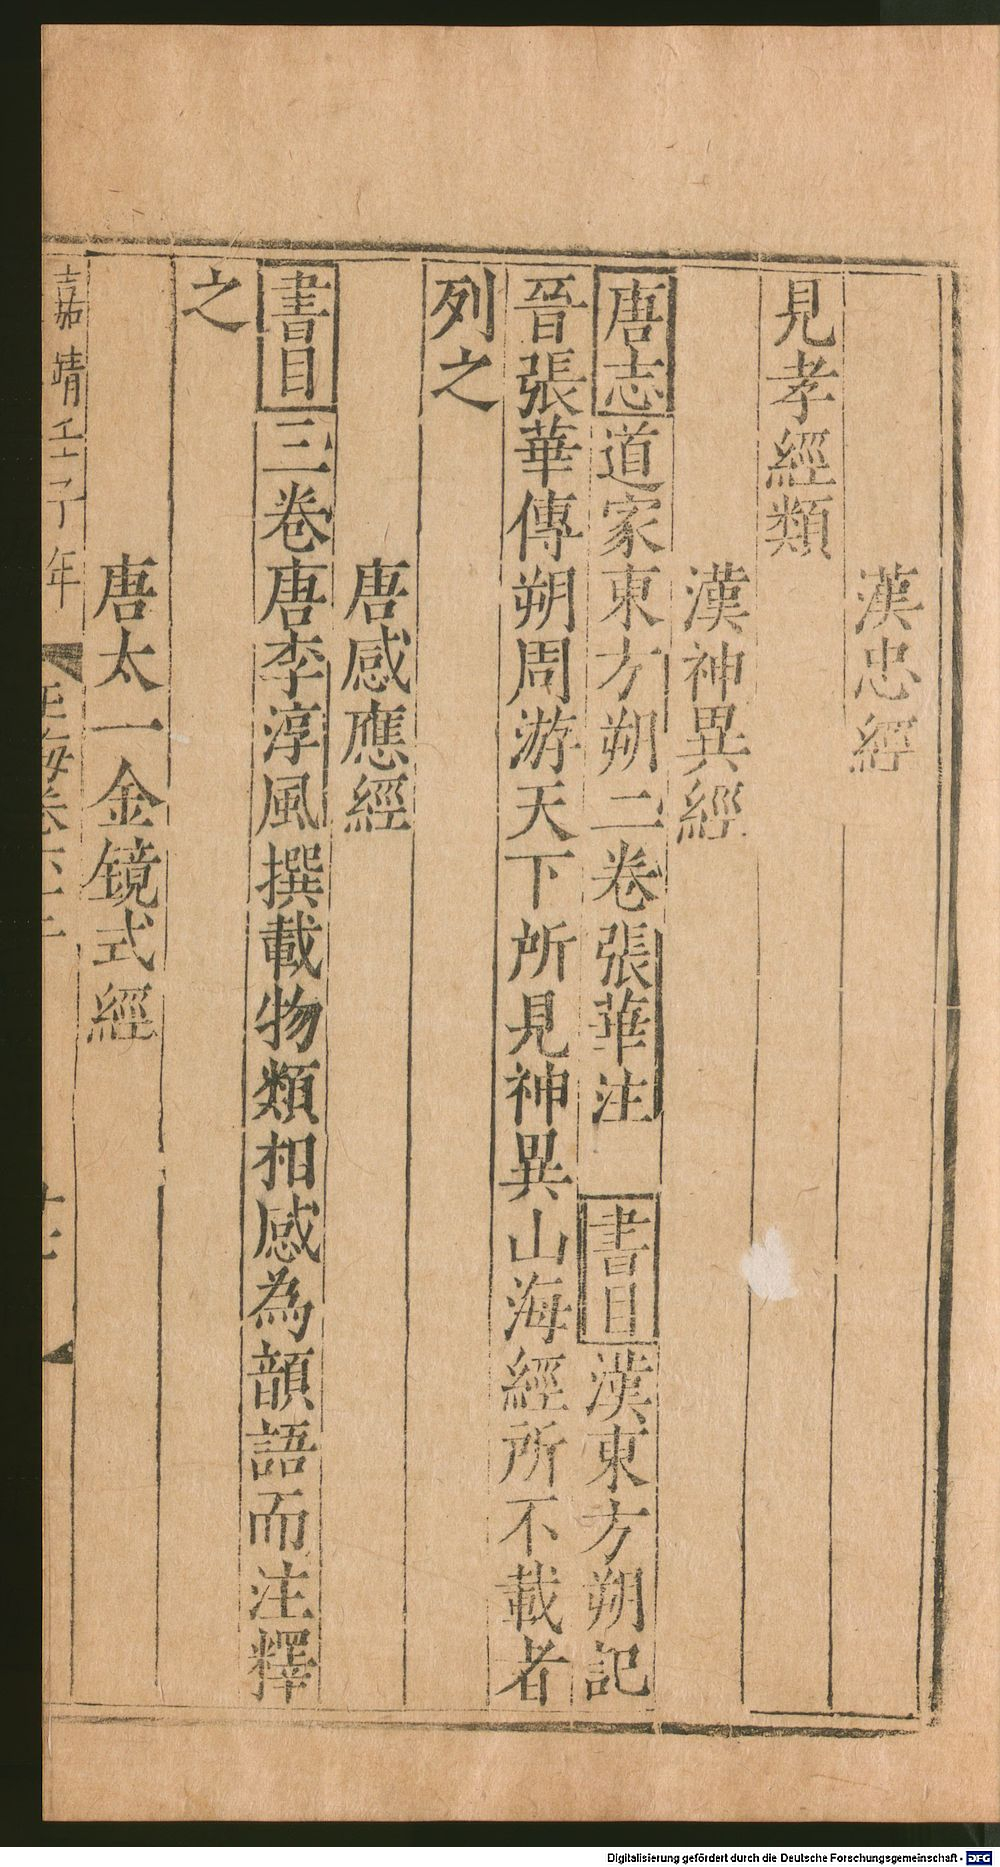 漢忠經
見孝經類
漢神異經
唐志道家東方朔二卷張華注　書目漢東方朔記
晉張華傳朔周游天下所見神異山海經所不載者
列之
唐感應經
書目三卷唐李淳風撰載物類相感為韻語而注釋
之
唐太一金鏡式經
嘉靖壬子年
Digitalisierung gefördert durch die Deutsche Forschungsgemeinschaft - DFG